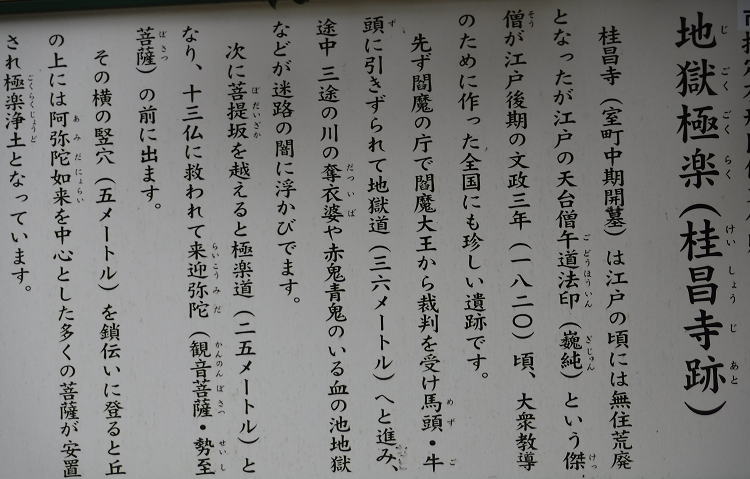 地獄極楽(桂昌寺跡)
桂昌寺(室町中期開墓)は江戸の頃には無住荒廃
となったが江戸の天台僧午道法印(巍純)という傑
僧が江戸後期の文政三年(一八二〇)頃、大衆教導
のために作った全国にも珍しい遺跡です。
先ず閻魔の庁で閻魔大王から裁判を受け馬頭・牛
頭に引きずられて地獄道(三六メートル)へと進み、
途中 三途の川の奪衣婆や赤鬼青鬼のいる血の池地獄
などが迷路の闇に浮かびでます。
次に菩提坂を越えると極楽道(二五メートル)と
なり、十三仏に救われて来迎弥陀(観音菩薩・勢至
菩薩)の前に出ます。
その横の竪穴(五メートル)を鎖伝いに登ると丘
の上には阿弥陀如来を中心とした多くの菩薩が安置
され極楽浄土となっています。